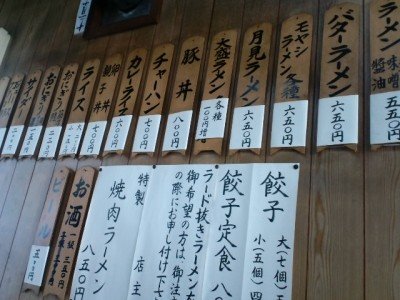 ラーメン
味噌
醤油
バターラーメン
六五〇円
モヤシ
ラーメン各種
六五〇円
月見ラーメン
六五〇円
大盛ラーメン
各種
一〇〇円増
豚丼
八〇〇円
チャーハン
七〇〇円
カレーライス
六〇〇円
親子丼
七〇〇円
ライス
おにぎり
おにぎり
サイダー
お酒
三五〇円
ビール
餃子
大(七個)五
小(五個)四
餃子定食
八
ラード抜きラーメンを
御希望の方は、御注
の際にお申し付け下さ
店主
特製
焼肉ラーメン
八五〇円